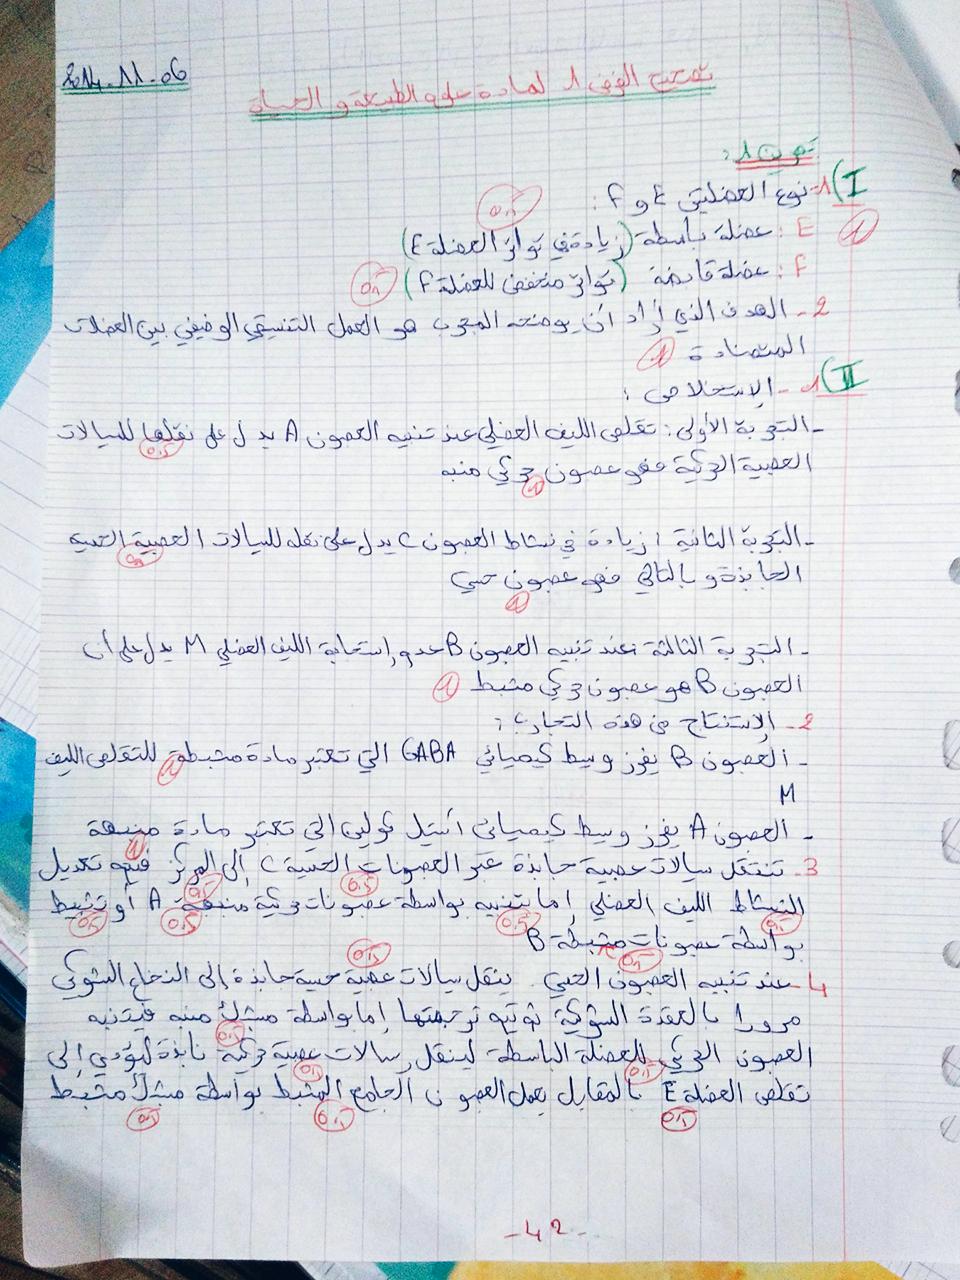 2014-11-06
تصحيح الفرض 1 لمادة علوم الطبيعة و الحياة
تمرين 1:
I) 1- نوع العضلتين E و F:
0,5
E: عضلة باسطة (زيادة في تواتر العضلة E)
1
F: عضلة قابضة (تواتر منخفض للعضلة F)
0,5
2- الهدف الذي أراد أن يوضحه المجرب هو العمل التنسيقي الوضيفي بين العضلات
المتضادة 1
II) 1- الإستخلاص:
- التجربة الأولى: تقلص الليف العضلي عند تنبيه العصبون A يدل على نقلها للسيالات
0,5
العصبية الحركية فهو عصبون حركي منبه
1
- التجربة الثانية: زيادة في نشاط العصبون C يدل على نقله للسيالات العصبية الحسية
0,5
الجابذة و بالتالي فهو عصبون حسي
1
- التجربة الثالثة: عند تنبيه العصبون B عدم إستجابة الليف العضلي M يدل على أن
العصبون B هو عصبون حركي مثبط 1
2- الإستنتاج من هذه التجارب:
- العصبون B يفرز وسيط كيميائي GABA التي تعتبر مادة مثبطة للتقلص الليف
1
M
- العصبون A يفرز وسيط كيميائي أستيل كولين التي تعتبر مادة منبهة
1
3- تنتقل سيالات عصبية جابذة عبر العصبونات الحسية C إلى المركز فيتم تعديل
0,5 0,5
النشاط الليف العضلي إما بتنبيه بواسطة عصبونات حركية منبهة A أو تثبيط
0,5 0,5 0,5 0,5
بواسطة عصبونات مثبطة B
0,5 0,5
4- عند تنبيه العصبون الحسي ينقل سيالات عصبية حسية جابذة إلى النخاع الشوكي
مرورا بالعقدة الشوكية ترجمتها إما بواسطة مشبك منبه فيتنبه
0,5
العصبون الحركي للعضلة الباسطة لينقل رسالات عصبية حركية نابذة ليؤدي إلى
0,5 0,5
تقلص العضلة E بالمقابل يعمل العصبون الجامع المثبط بواسطة مشبك مثبط
0,5 0,5 0,5
- 42 -